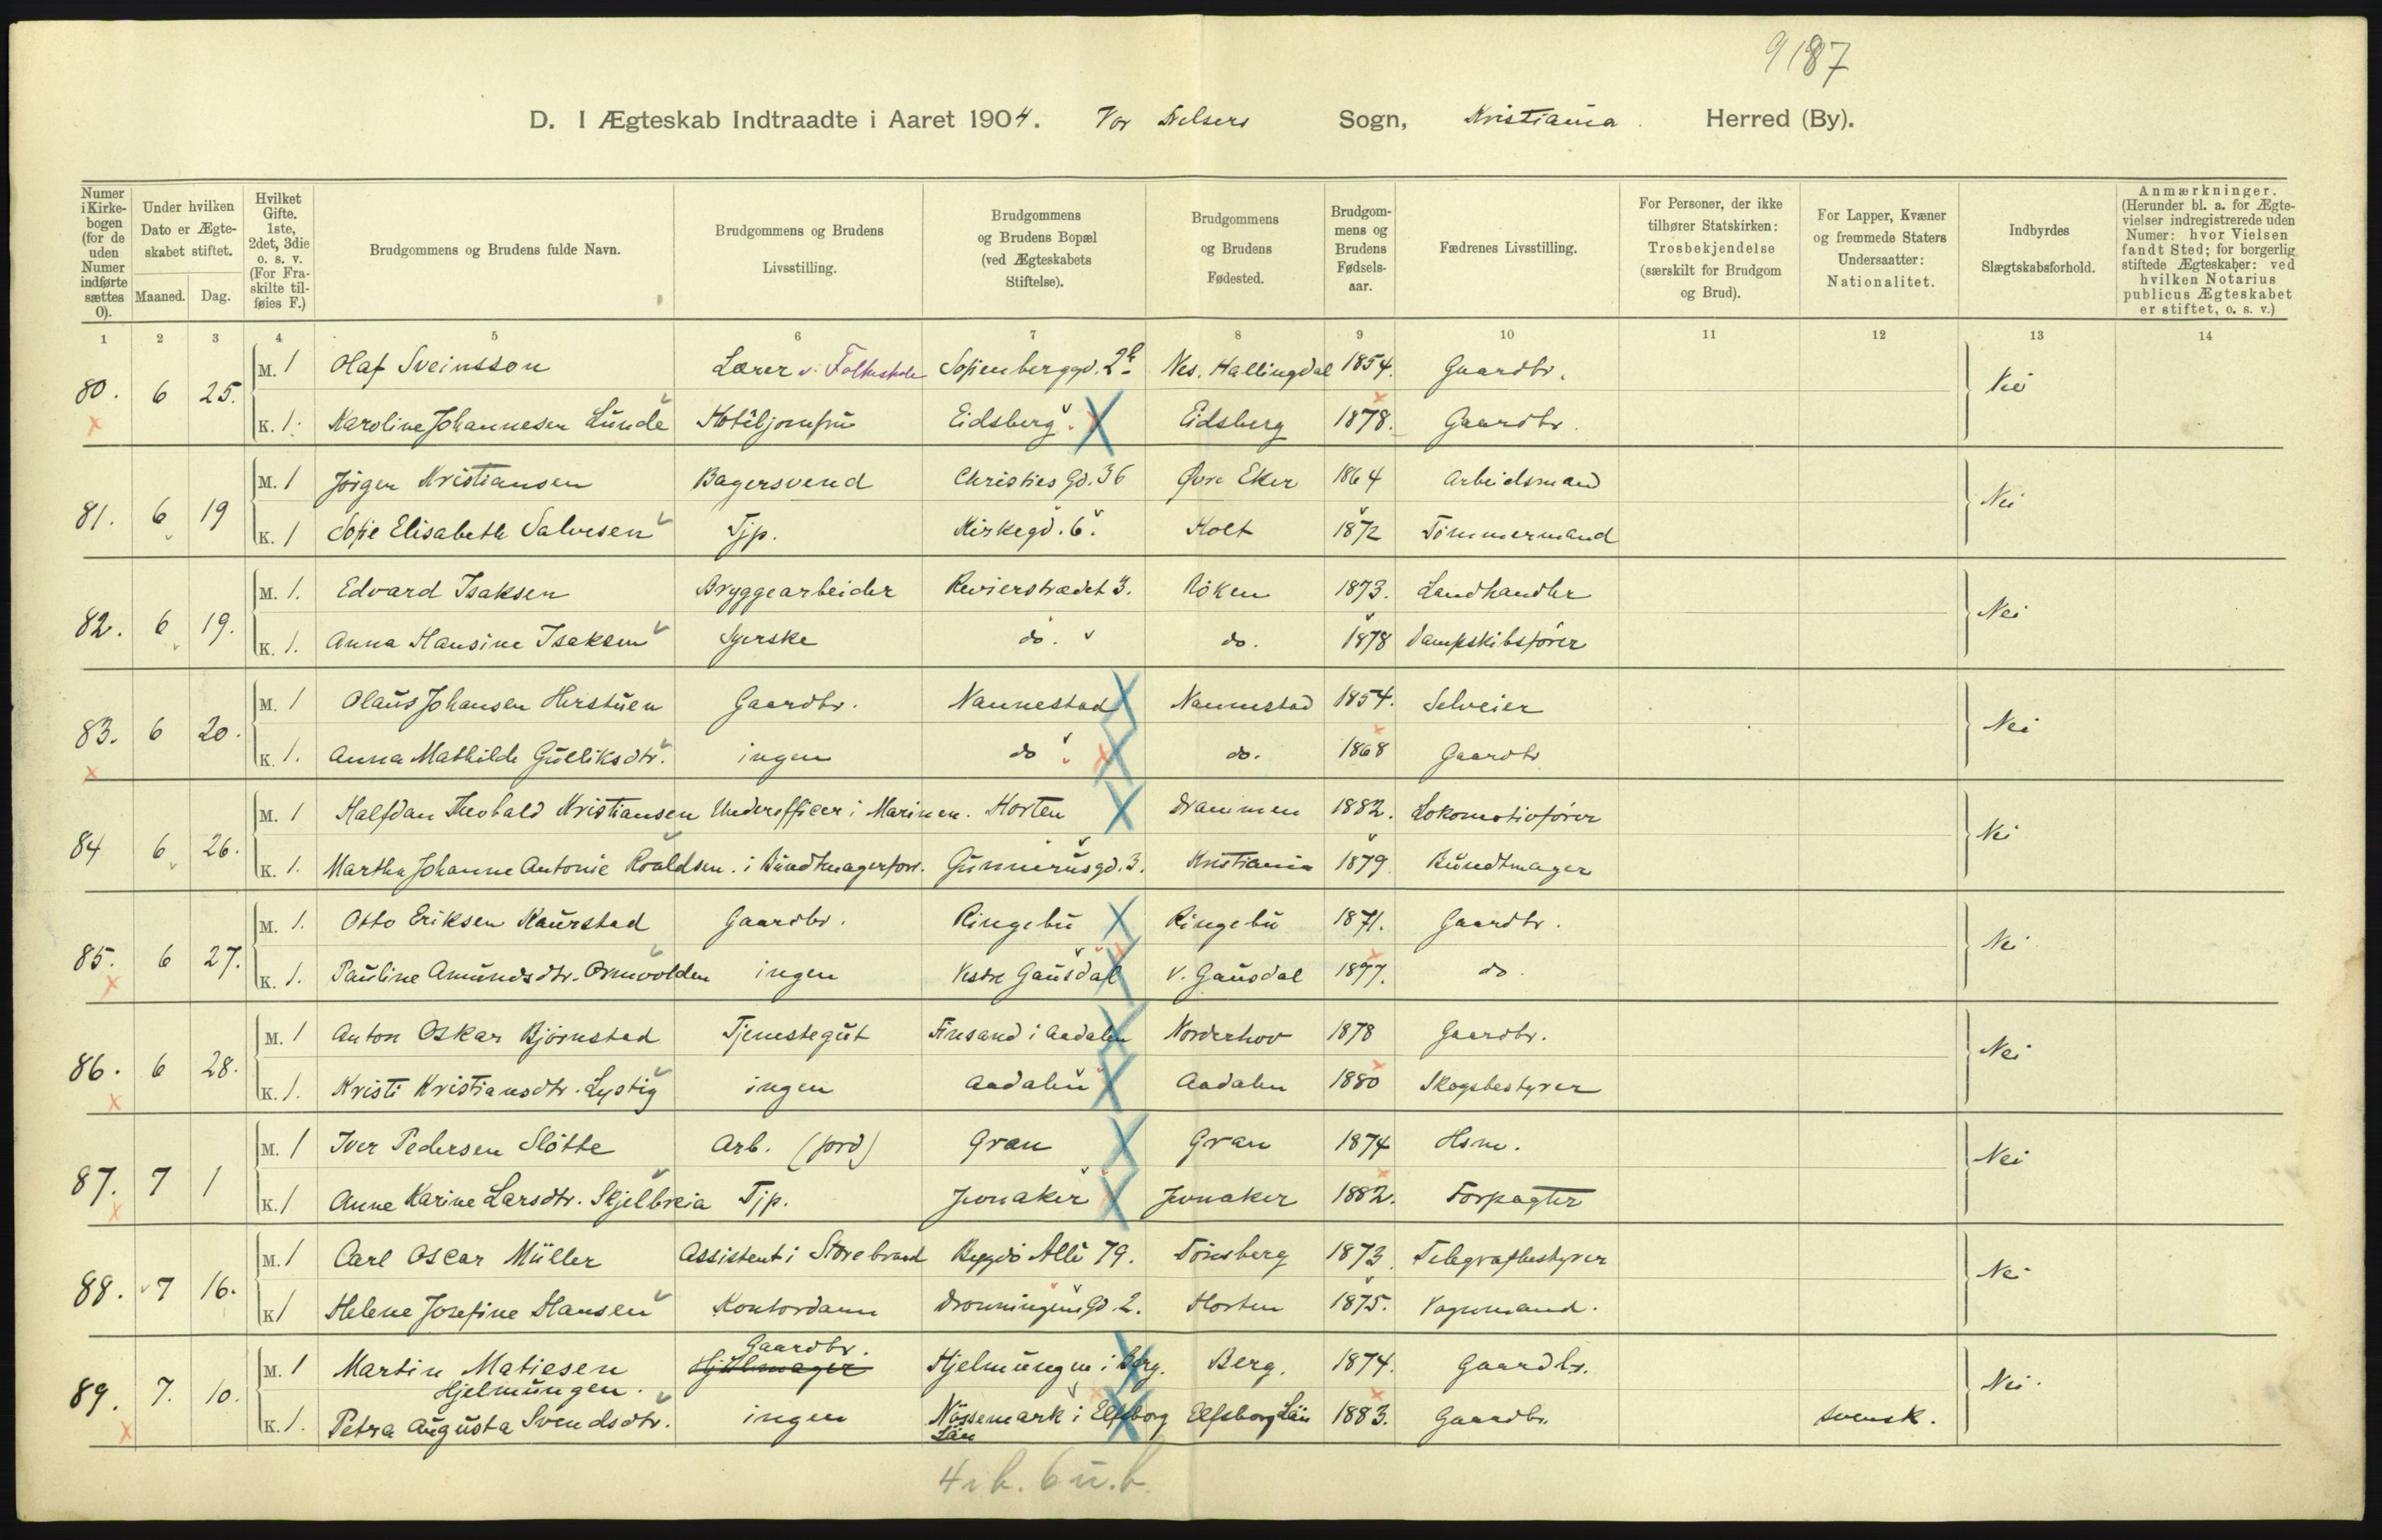 9187
D. I Ægteskab Indtraadte i Aaret 1904. Vor Frelsers Sogn, Kristiania. Herred (By).
Numer i Kirke-bogen (for de uden Numer indførte sættes 0). | Under hvilken Dato er Ægte-skabet stiftet. Maaned. Dag. | Hvilket Gifte. 1ste, 2det, 3die o. s. v. (For Fra-skilte til-føies F.) | Brudgommens og Brudens fulde Navn. | Brudgommens og Brudens Livsstilling. | Brudgommens og Brudens Bopæl (ved Ægteskabets Stiftelse). | Brudgommens og Brudens Fødested. | Brudgom-mens og Brudens Fødsels-aar. | Fædrenes Livsstilling. | For Personer, der ikke tilhører Statskirken: Trosbekjendelse (særskilt for Brudgom og Brud). | For Lapper, Kvæner og fremmede Staters Undersaatter: Nationalitet. | Indbyrdes Slægtskabsforhold. | Anmærkninger. (Herunder bl. a. for Ægte-vielser indregistrerede uden Numer: hvor Vielsen fandt Sted; for borgerlig stiftede Ægteskaber: ved hvilken Notarius publicus Ægteskabet er stiftet, o. s. v.)
1 2 3 4 5 6 7 8 9 10 11 12 13 14
80. 6 25. M. 1 Olaf Sveinsson Lærer v. Folkeskole Sofienberggd. 2b Nes. Hallingdal 1854. Gaardbr. Nei
K. 1. Karoline Johannesen Lunde Hoteljomfru Eidsberg. Eidsberg 1878. Gaardbr.
81. 6 19 M. 1 Jörgen Kristiansen Bagersvend Christies Gd. 36 Øvre Eker 1864 Arbeidsmand Nei
K. 1 Sofie Elisabeth Salvesen Tjp. Kirkegd. 6. Holt 1872 Tömmermand
82. 6 19. M. 1. Edvard Isaksen Bryggearbeider Revierstrædet 3. Röken 1873. Landhandler Nei
K. 1. Anna Hansine Isaksen Syerske do. do. 1878 Dampskibsförer
83. 6 20. M. 1 Olaus Johansen Herstuen Gaardbr. Nannestad Nannestad 1854. Selveier Nei
K. 1. Anna Mathilde Gulliksdtr. ingen do do. 1868 Gaardbr
84 6 26. M. 1 Halfdan Theobald Kristiansen Underofficer i Marinen. Horten Drammen 1882. Lokomotivförer Nei
K. 1. Martha Johanne Antonie Roaldsen. i Bundtmagerforr. Gunnerusgd. 3. Kristiania 1879 Bundtmager
85. 6 27. M. 1. Otto Eriksen Kaurstad Gaardbr. Ringebu Ringebu 1871. Gaardbr. Nei
K. 1. Pauline Amundsdtr. Ormvolden ingen Vestre Gausdal V. Gausdal 1877. do.
86. 6 28. M. 1 Anton Oskar Björnstad Tjenstegut Finsand i Aadalen Norderhov 1878 Gaardbr. Nei
K. 1. Kristi Kristiansdtr. Lystig ingen Aadalen Aadalen 1880 Skogsbestyrer
87. 7 1 M. 1 Iver Pedersen Slötte Arb. (jord) Gran Gran 1874 Hsm. Nei
K. 1 Anne Karine Larsdtr. Skjelbreia Tjp. Jevnaker Jevnaker 1882. Forpagter
88. 7 16. M. 1 Carl Oscar Müller Assistent i Storebrand Bygdö Allé 79. Tönsberg 1873. Telegrafbestyrer Nei
K 1 Helene Josefine Hansen Kontordame Dronningens Gd 2. Horten 1875. Vognmand.
89. 7. 10. M. 1 Martin Matiesen Hjelmungen. Gaardbr. Hjulmager Hjelmungen i Berg. Berg. 1874. Gaardbr. Nei.
K. 1. Petra Augusta Svendsdtr. ingen Nössemark i Elfsborg Län Elfsborg Län 1883. Gaardbr. svensk.
4 i b. 6 u. b.